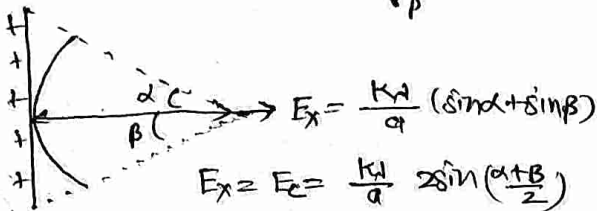 β
+
+
+
+
+
α
β
Eₓ = Kλ/a (sinα + sinβ)
Eₓ = E꜀ = Kλ/a 2sin(α+β/2)